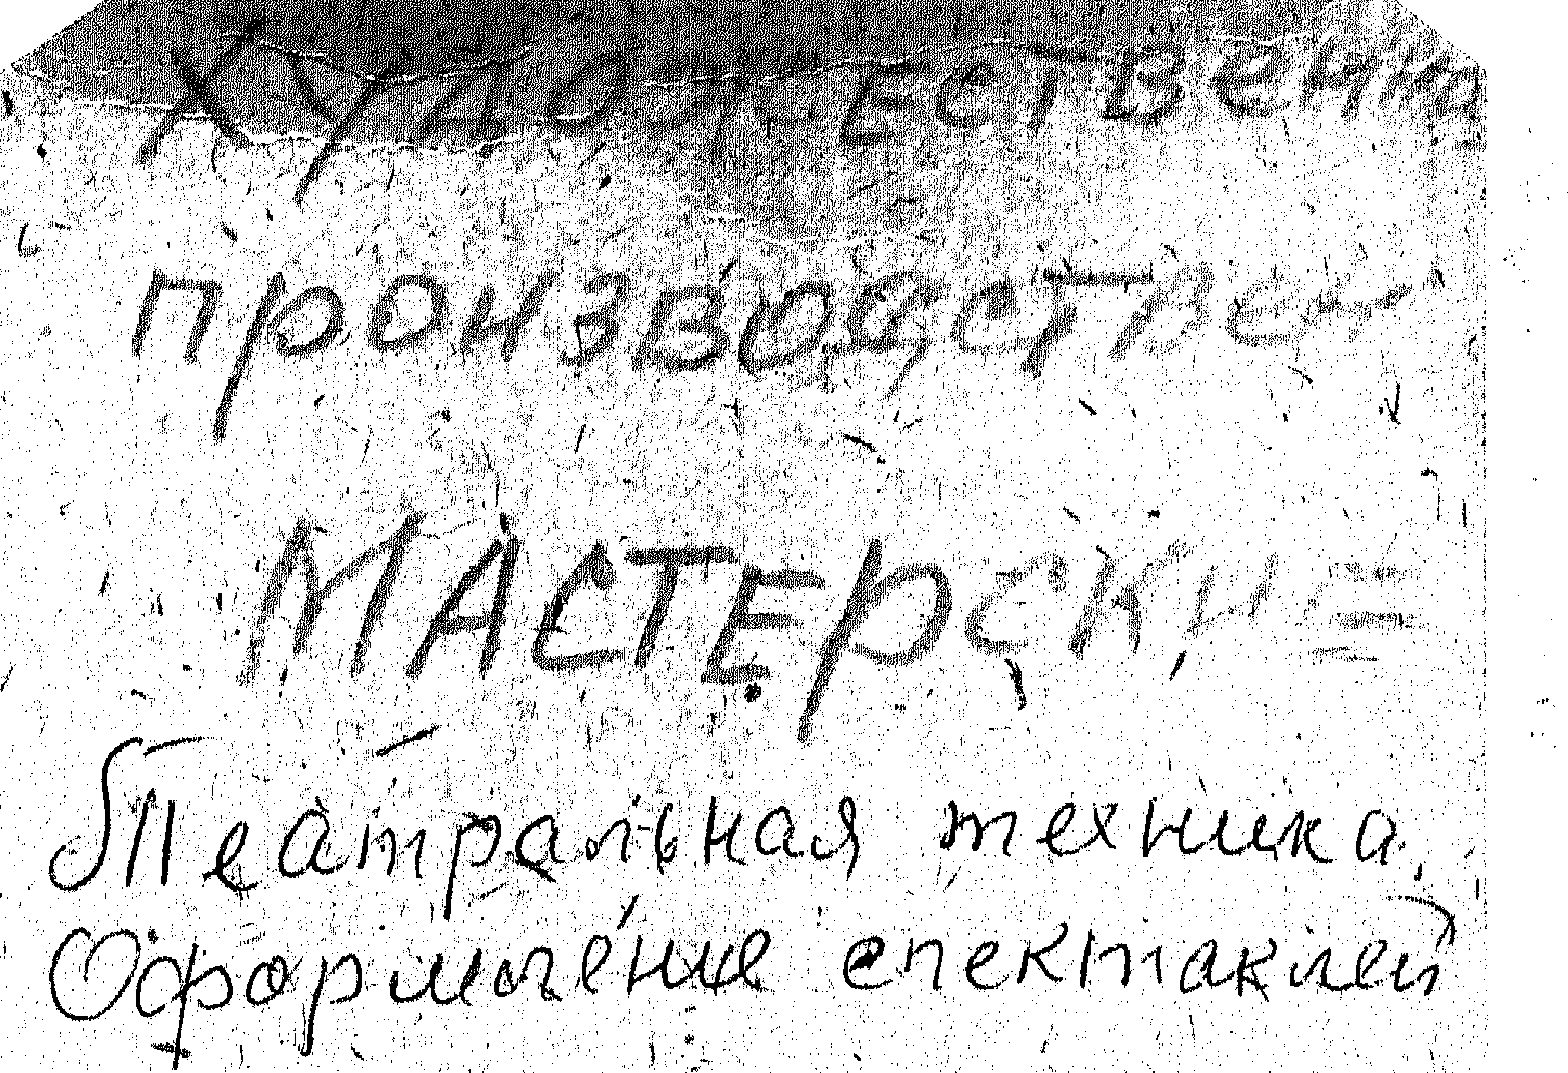 Художествен
производствен
МАСТЕРСКИЕ
Театральная техника,
Оформление спектаклей